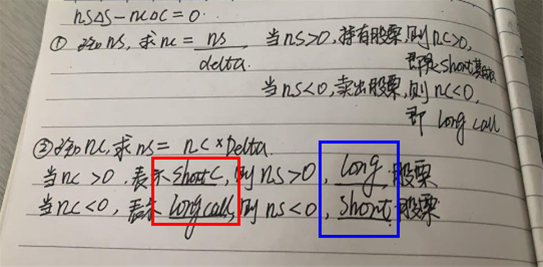 nsΔS-ncΔC=0.
① 已知ns,求nc=ns/delta. 当ns>0,持有股票,则nc>0,
即是short
当ns<0,卖出股票,则nc<0,
即 long call
②已知nc,求ns= nc×Delta.
当nc>0,表示short C,则ns>0,long 股票
当nc<0,表示long call,则ns<0,short 股票